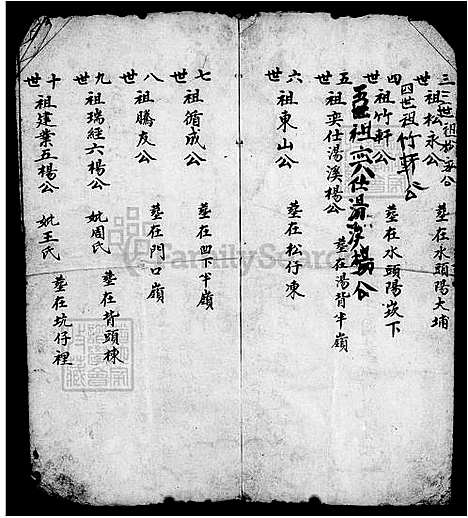 三世祖松永公 墓在水頭陽大埔
三世祖松永公
四世祖竹軒公
四世祖竹軒公 墓在水頭陽崁下
五世祖奕仕湯溪楊公
五世祖奕仕湯溪楊公 墓在湯背半嶺
六世祖東山公 墓在松仔凍
七世祖循成公 墓在凹下半嶺
八世祖騰友公 墓在門口嶺
九世祖瑞經六楊公 妣周氏 墓在背頭棟
十世祖建業五楊公 妣王氏 墓在坑仔裡
FamilySearch